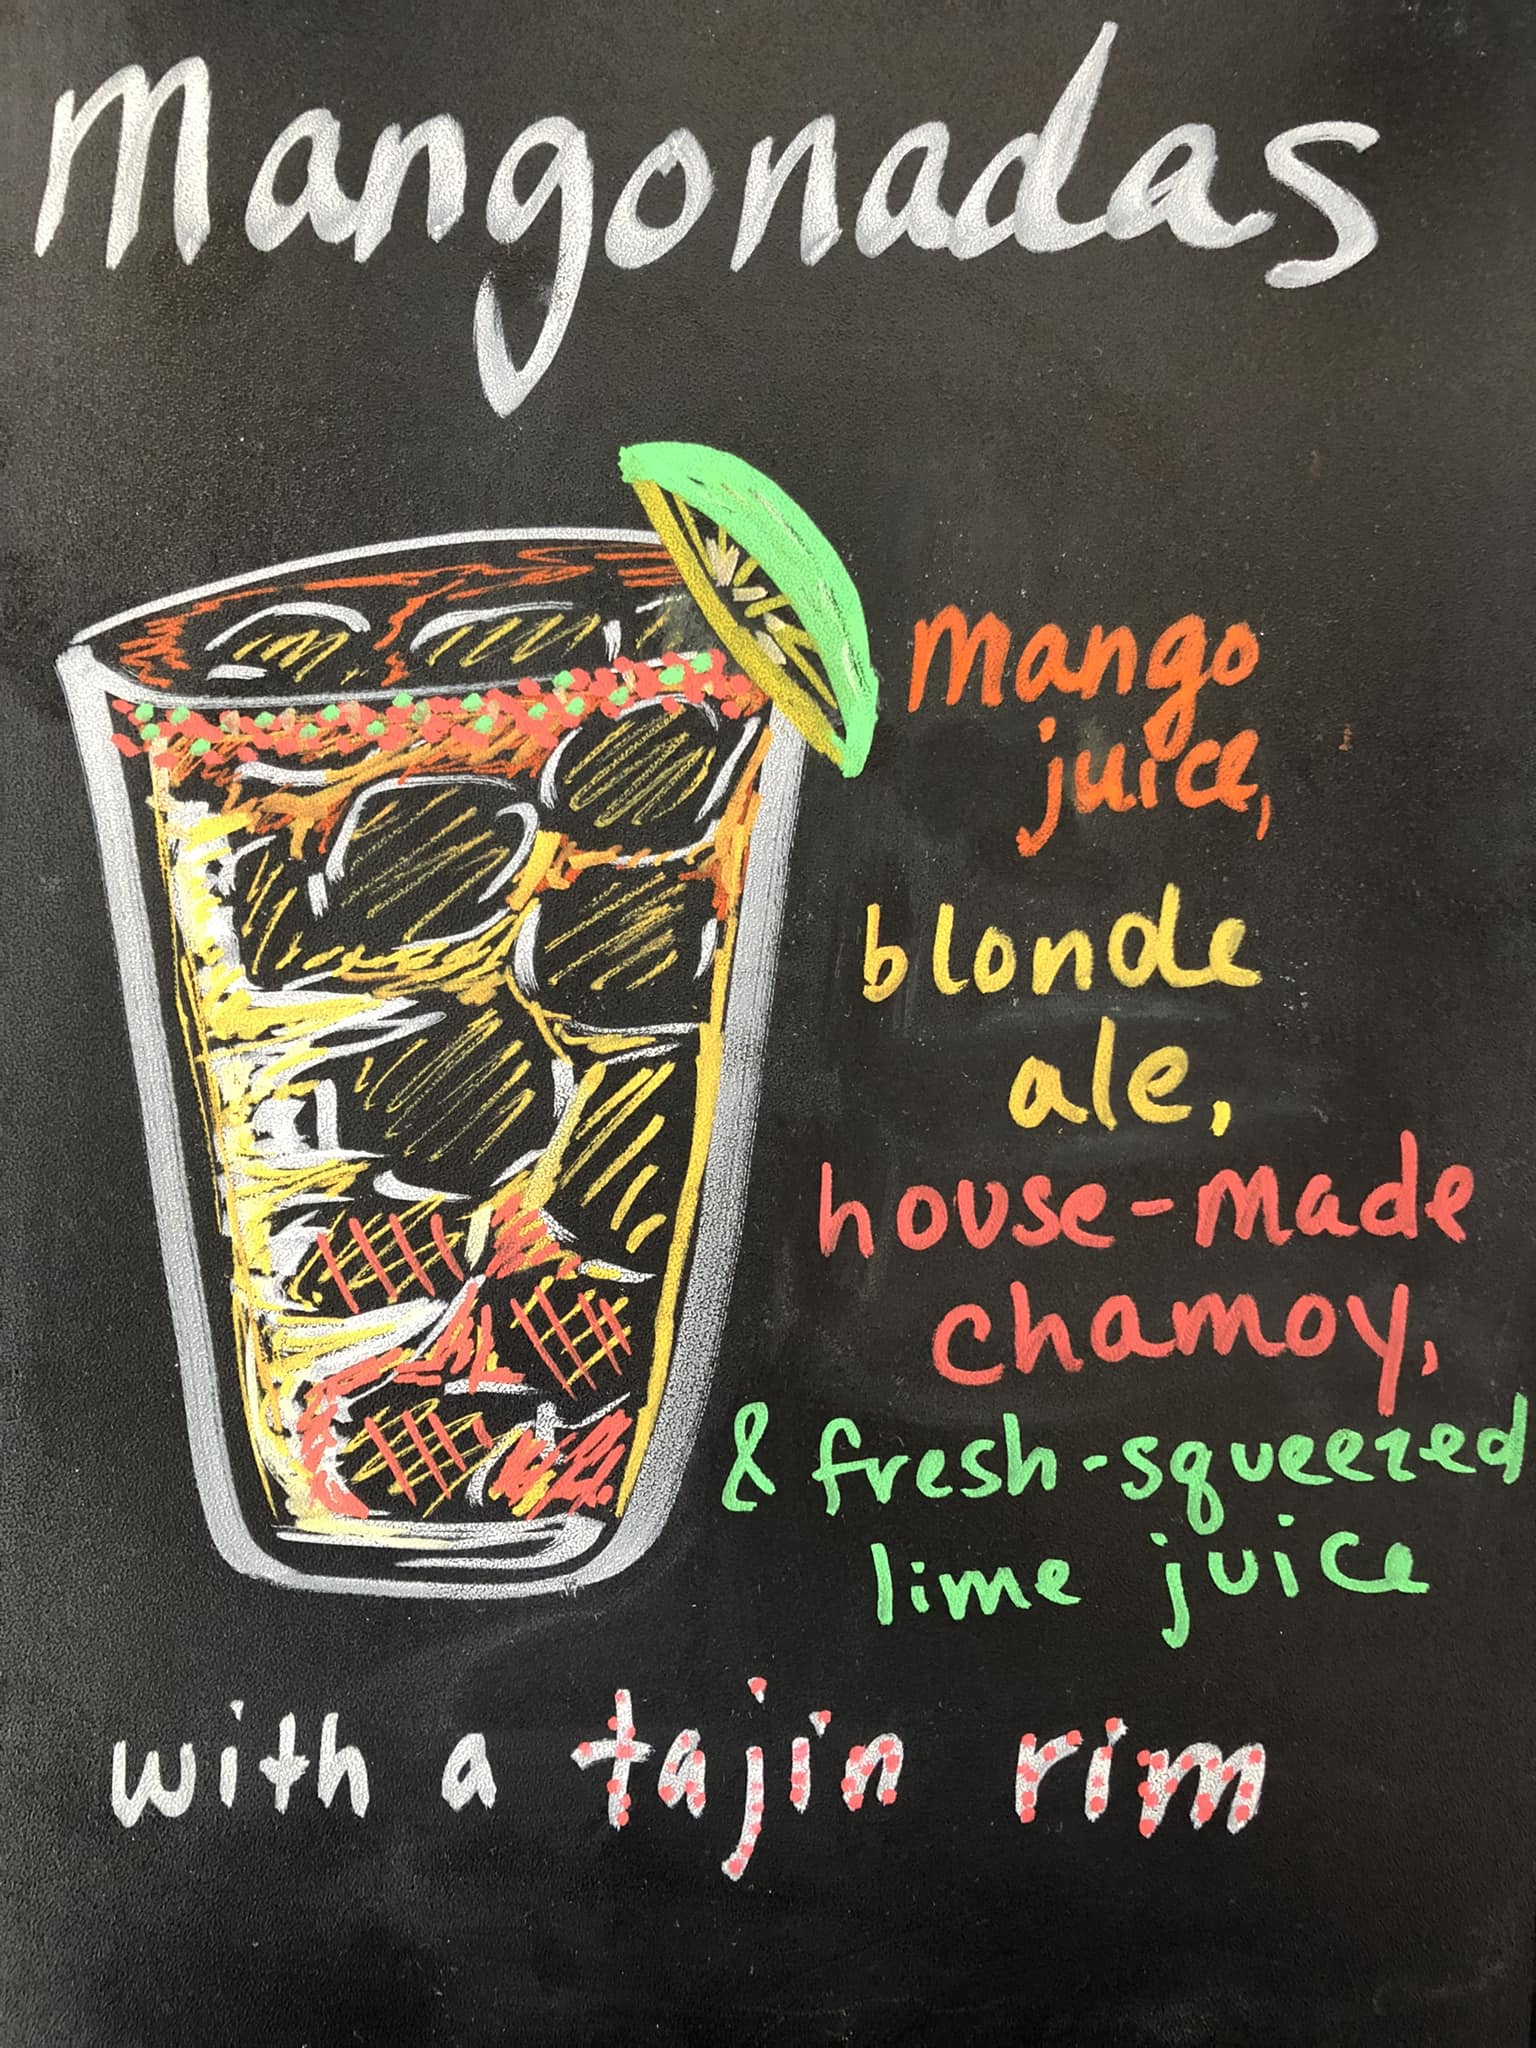 Mangonadas
mango
juice,
blonde
ale,
house-made
chamoy,
& fresh-squeezed
lime juice
with a tajin rim